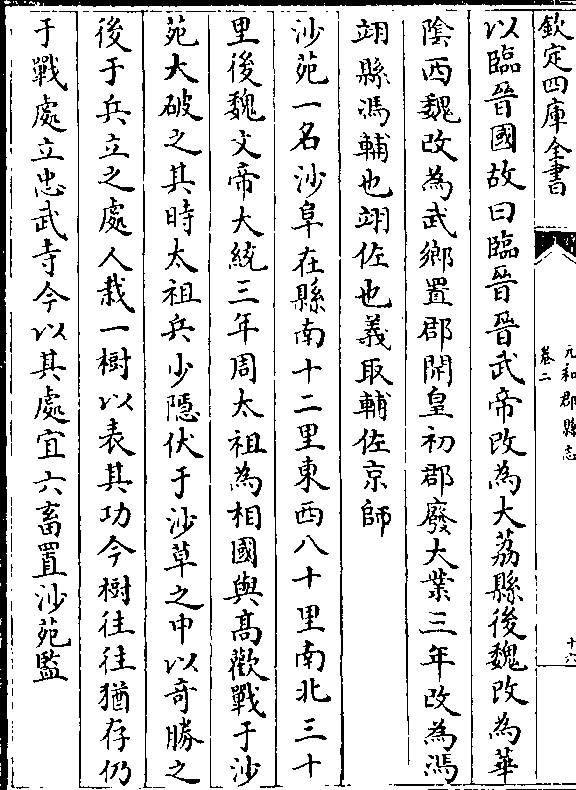 欽定四庫全書
元和郡縣志
卷二
十六
以臨晉國故曰臨晉晉武帝改為大荔縣後魏改為華
陰西魏改為武鄉置郡開皇初郡廢大業三年改為馮
翊縣馮輔也翊佐也義取輔佐京師
沙苑一名沙阜在縣南十二里東西八十里南北三十
里後魏文帝大統三年周太祖為相國與高歡戰于沙
苑大破之其時太祖兵少隱伏于沙草之中以奇勝之
後于兵立之處人栽一樹以表其功今樹往往猶存仍
于戰處立忠武寺今以其處宜六畜置沙苑監